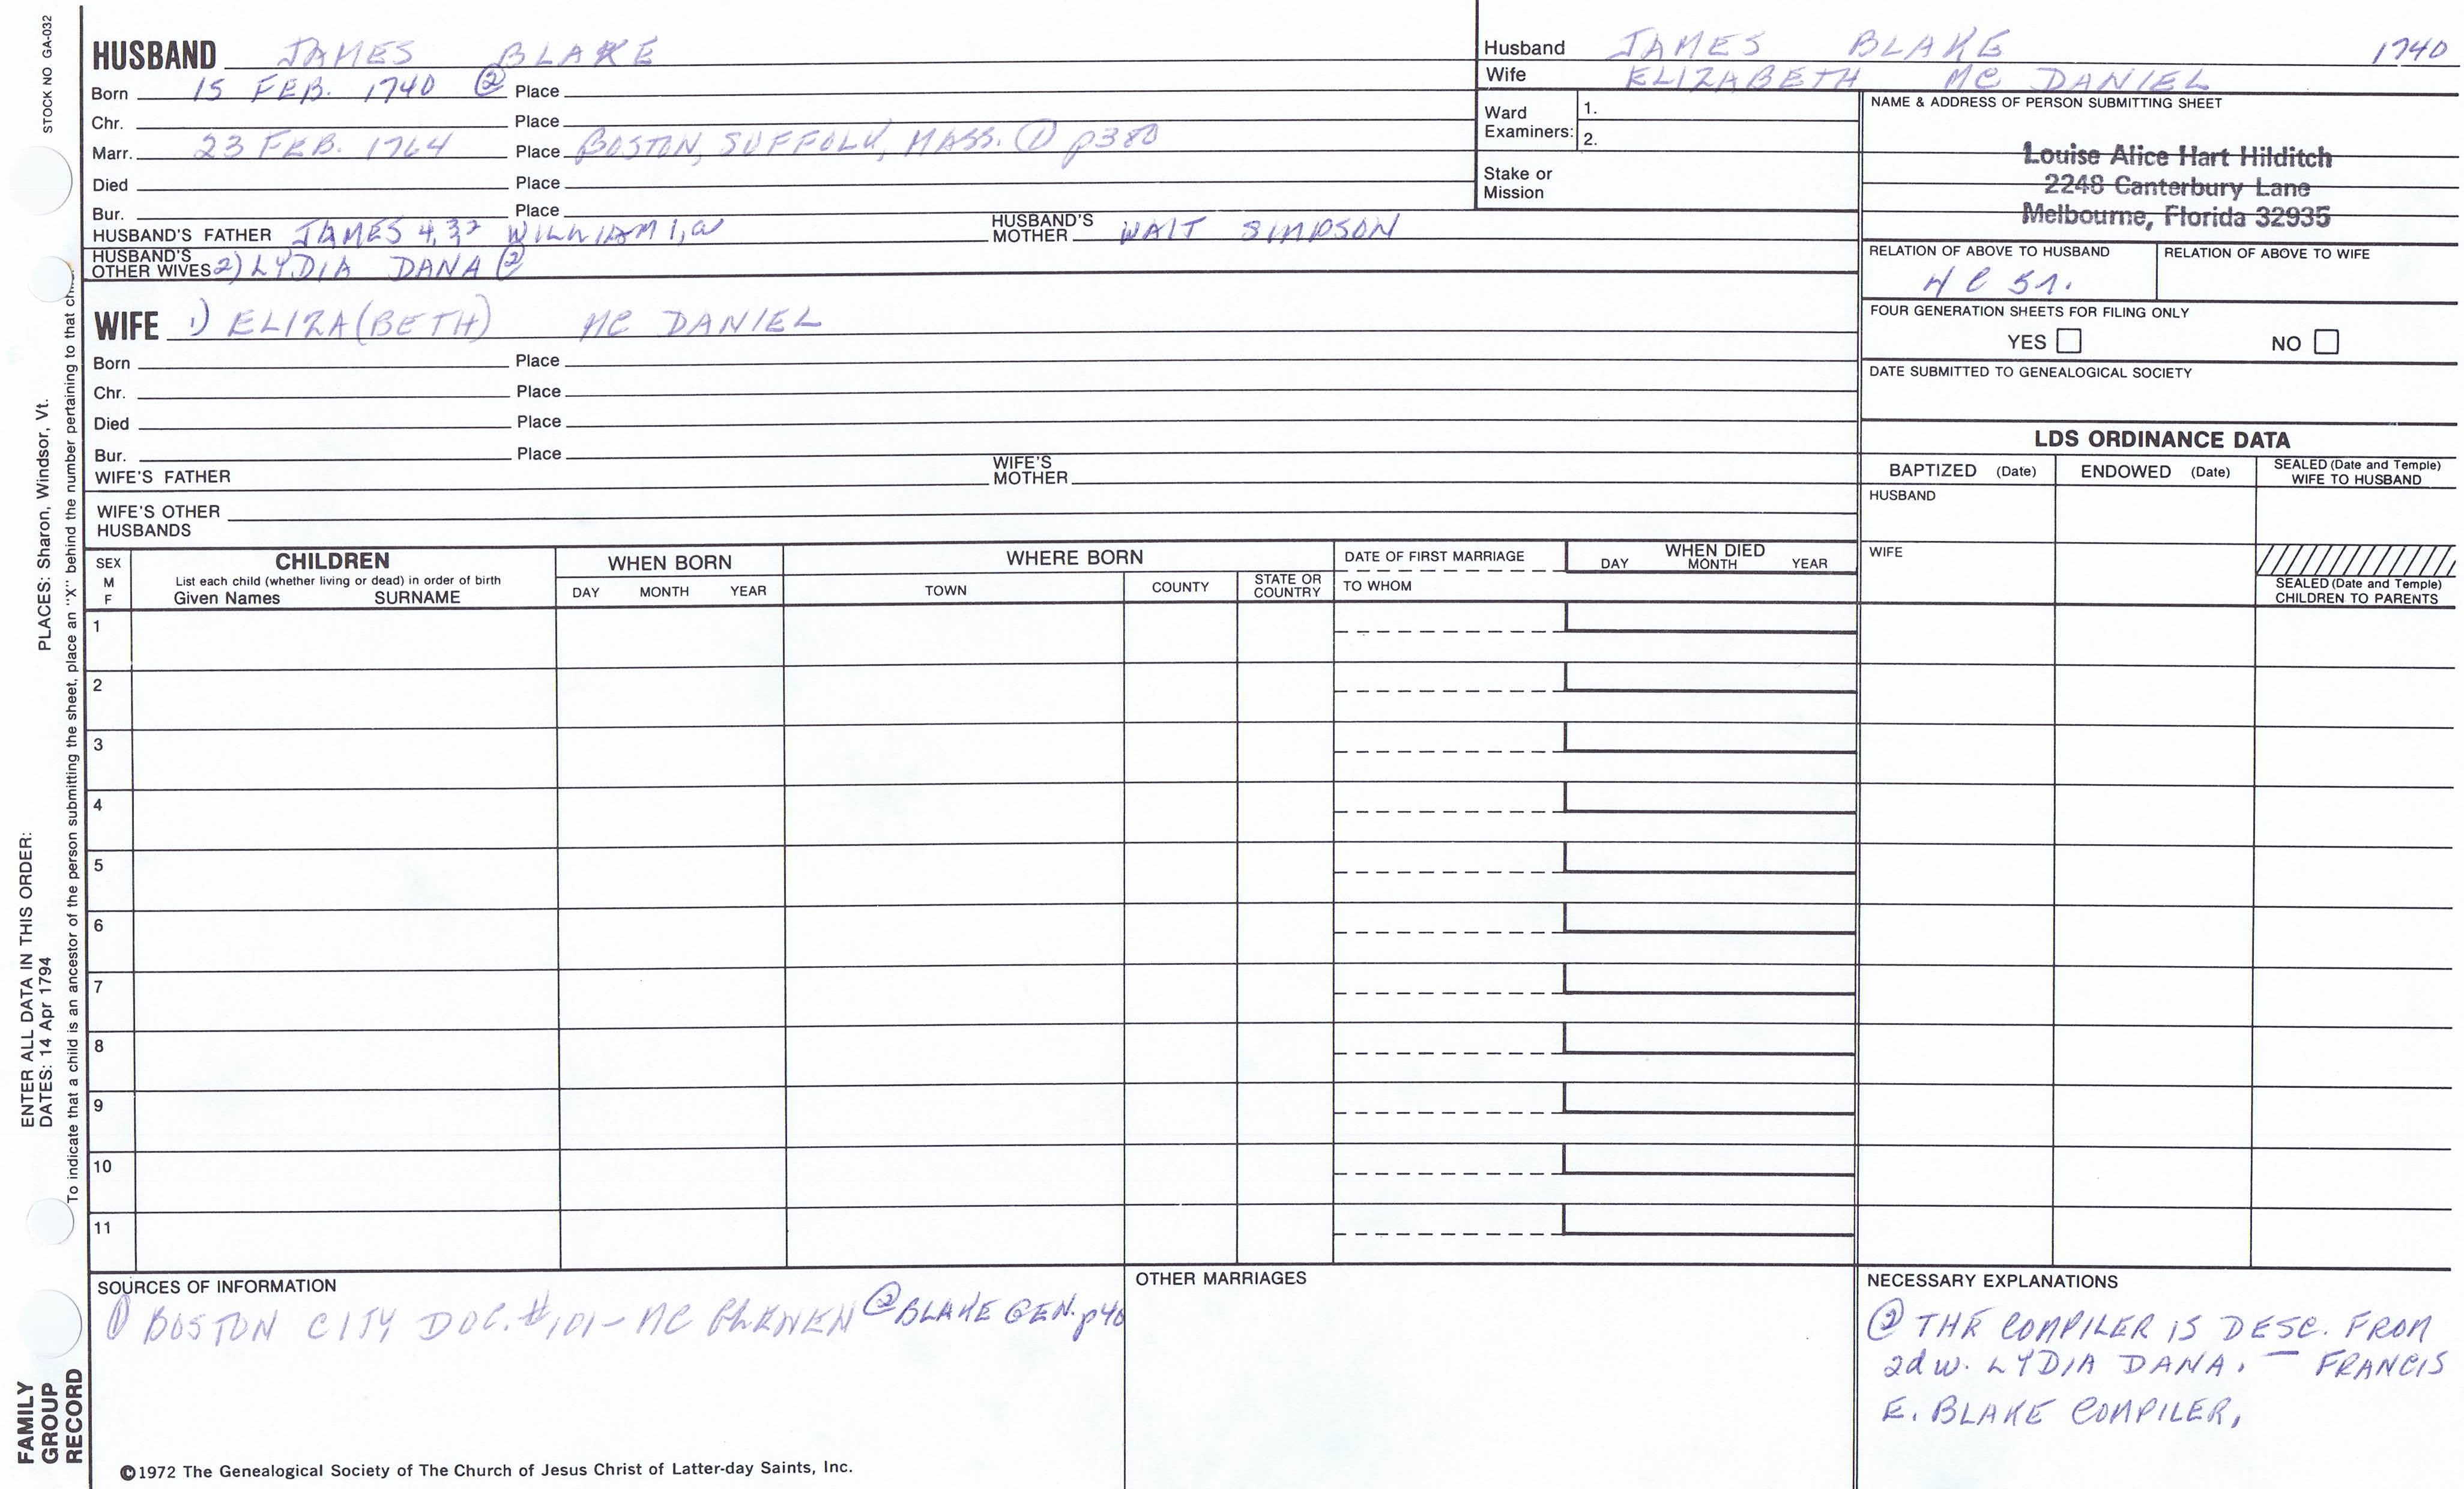 STOCK NO GA-032
HUSBAND JAMES BLAKE
Born 15 FEB. 1740 ② Place
Chr. Place
Marr. 23 FEB. 1764 Place BOSTON, SUFFOLK, MASS. ① p380
Died Place
Bur. Place
HUSBAND'S FATHER JAMES 4,3,2 WILLIAM 1,a HUSBAND'S MOTHER WAIT SIMPSON
HUSBAND'S OTHER WIVES 2) LYDIA DANA ②
WIFE 1) ELIZA(BETH) MC DANIEL
Born Place
Chr. Place
Died Place
Bur. Place
WIFE'S FATHER WIFE'S MOTHER
WIFE'S OTHER HUSBANDS
Husband JAMES BLAKE 1740
Wife ELIZABETH MC DANIEL
Ward Examiners: 1.
2.
Stake or Mission
NAME & ADDRESS OF PERSON SUBMITTING SHEET
Louise Alice Hart Hilditch
2248 Canterbury Lane
Melbourne, Florida 32935
RELATION OF ABOVE TO HUSBAND RELATION OF ABOVE TO WIFE
4 C 5 r.
FOUR GENERATION SHEETS FOR FILING ONLY
YES NO
DATE SUBMITTED TO GENEALOGICAL SOCIETY
LDS ORDINANCE DATA
BAPTIZED (Date) ENDOWED (Date) SEALED (Date and Temple) WIFE TO HUSBAND
HUSBAND
WIFE
SEALED (Date and Temple) CHILDREN TO PARENTS
SEX M F
CHILDREN
List each child (whether living or dead) in order of birth
Given Names SURNAME
WHEN BORN
DAY MONTH YEAR
WHERE BORN
TOWN COUNTY STATE OR COUNTRY
DATE OF FIRST MARRIAGE
TO WHOM
WHEN DIED
DAY MONTH YEAR
1
2
3
4
5
6
7
8
9
10
11
SOURCES OF INFORMATION
① BOSTON CITY DOC. #101- MC ② BLAKE GEN. p40
OTHER MARRIAGES
NECESSARY EXPLANATIONS
② THE COMPILER IS DESC. FROM
2d w. LYDIA DANA. — FRANCIS
E. BLAKE COMPILER,
©1972 The Genealogical Society of The Church of Jesus Christ of Latter-day Saints, Inc.
FAMILY GROUP RECORD
ENTER ALL DATA IN THIS ORDER:
DATES: 14 Apr 1794 PLACES: Sharon, Windsor, Vt.
To indicate that a child is an ancestor of the person submitting the sheet, place an "X" behind the number pertaining to that